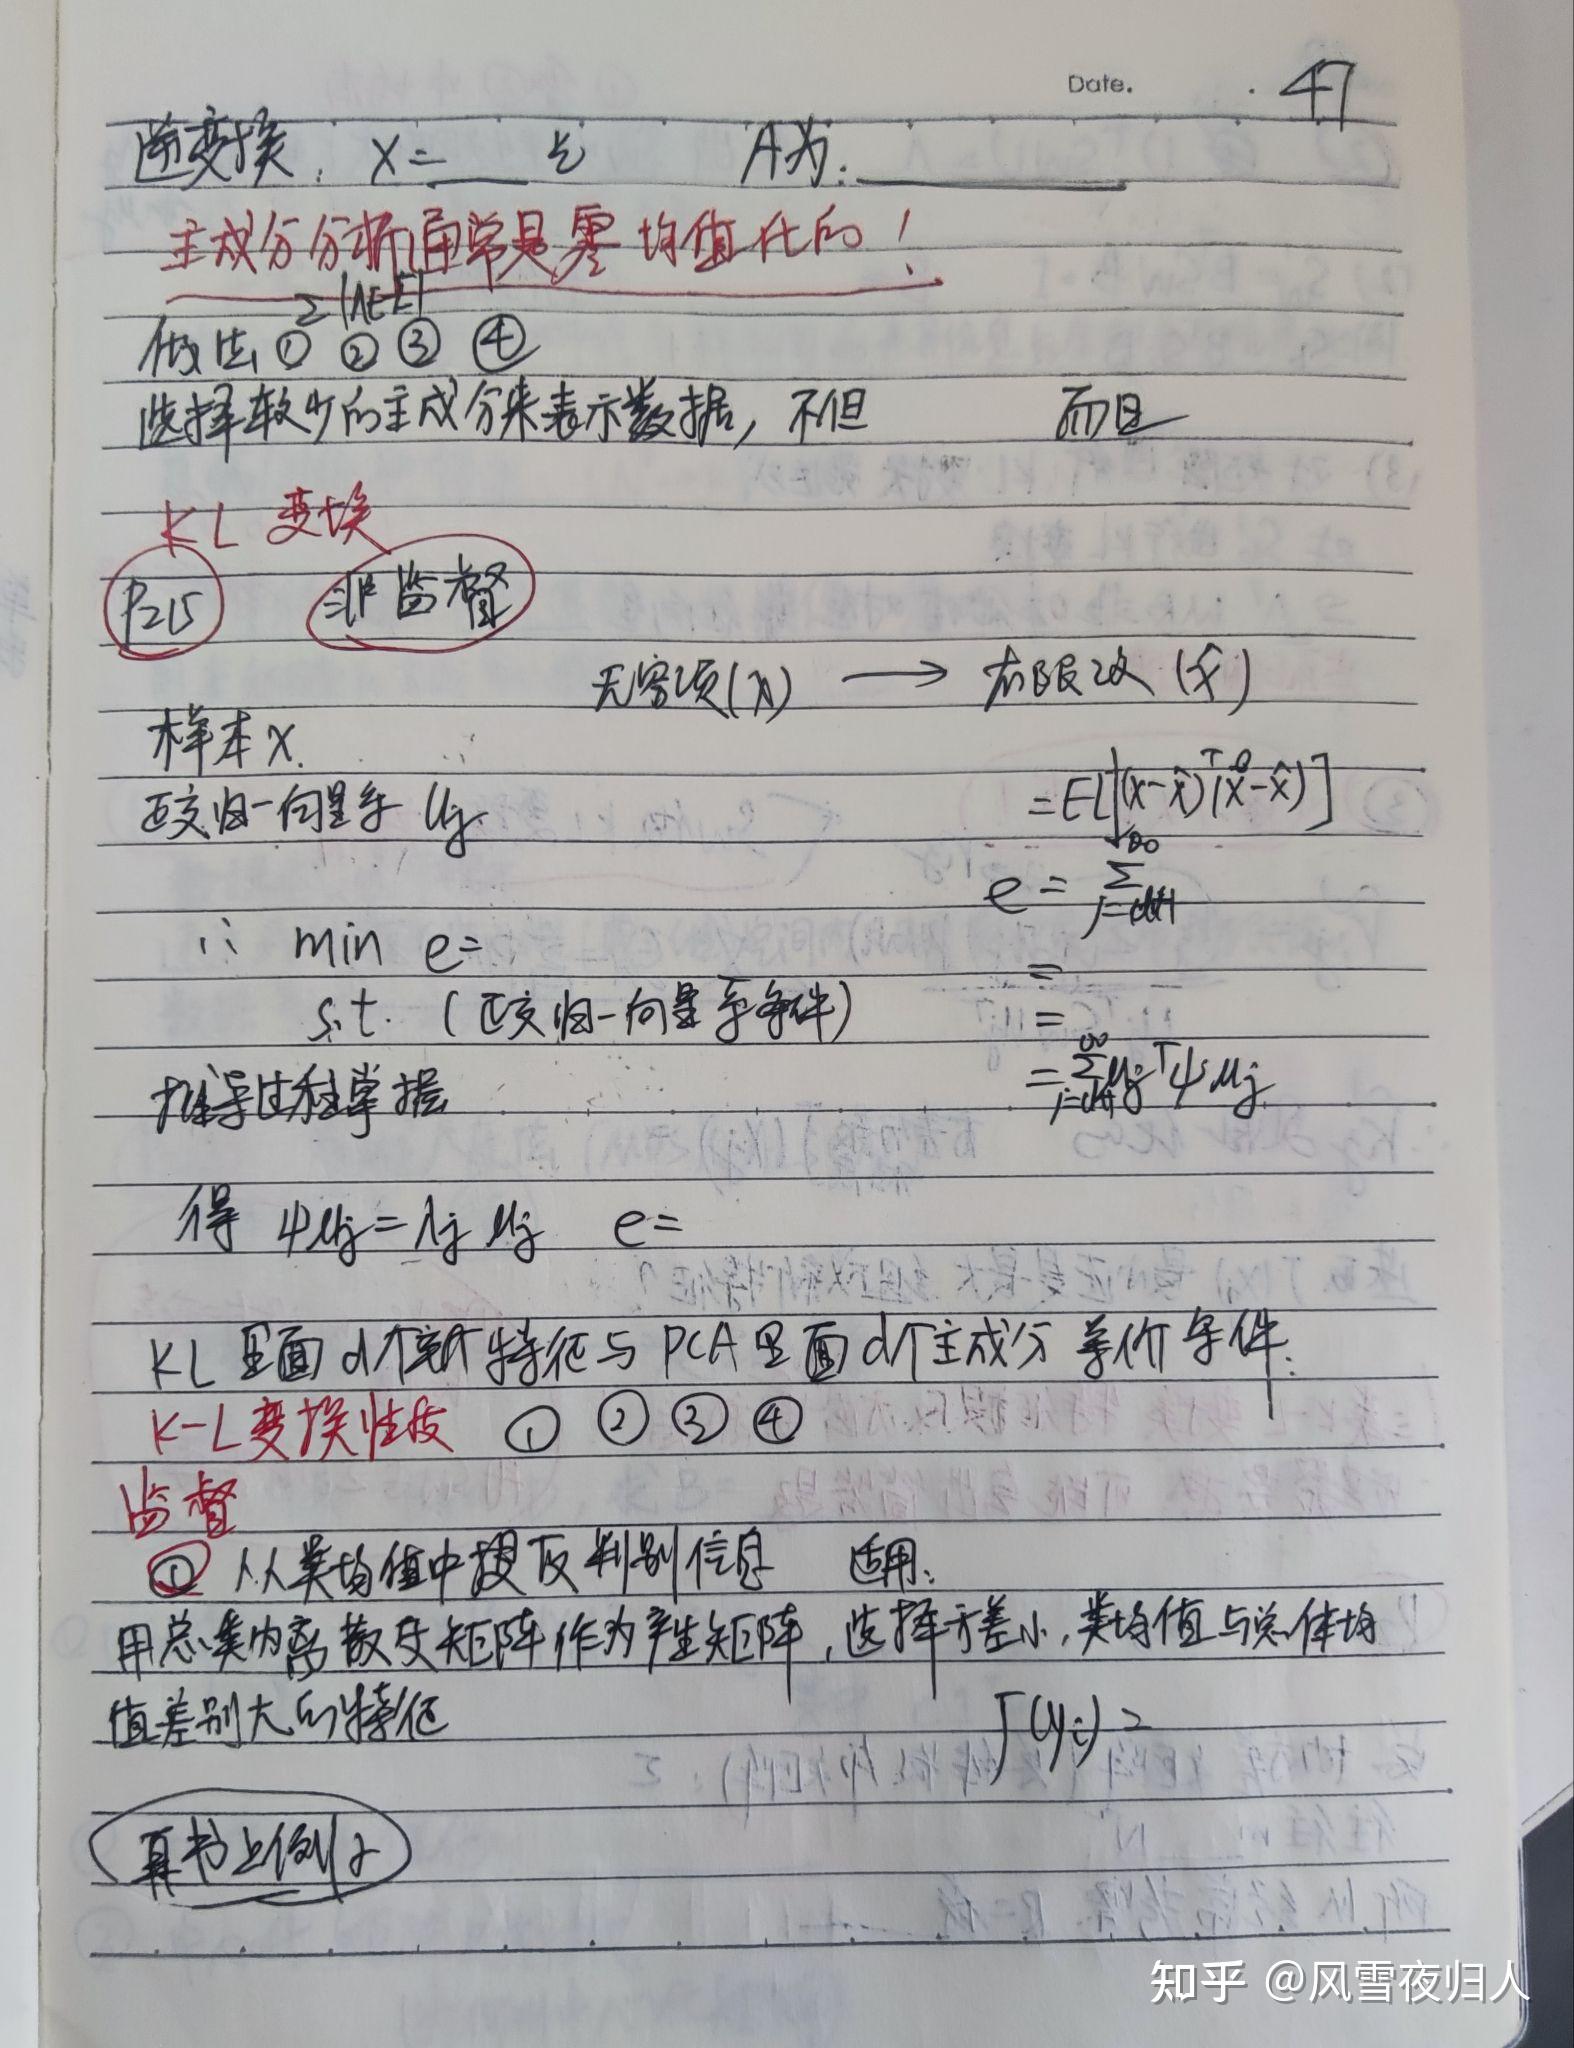 Date. 47
逆变换: X=____ ξ A为:________
主成分分析通常是零均值化的!
Σ |λE-E|
做法 ① ② ③ ④
选择较少的主成分来表示数据, 不但 而且
KL 变换
P215 非监督
无穷项(x) → 有限项 (x̂)
样本X.
正交归一向量系 Uj
=E[(x-x̂)ᵀ(x-x̂)]
e = Σ j=d+1 ∞
∴ min e=
=
s.t. (正交归一向量系条件)
=
推导过程掌握
= Σ j=d+1 ∞ μjᵀψμj
得 ψμj=λjμj e=
KL 里面d个新特征与PCA里面d个主成分 等价条件:
K-L变换性质 ① ② ③ ④
监督
① 从类均值中提取判别信息 适用:
用总类内离散度矩阵作为产生矩阵, 选择方差小, 类均值与总体均
值差别大的特征 J(yi)=
算书上例2
知乎 @风雪夜归人